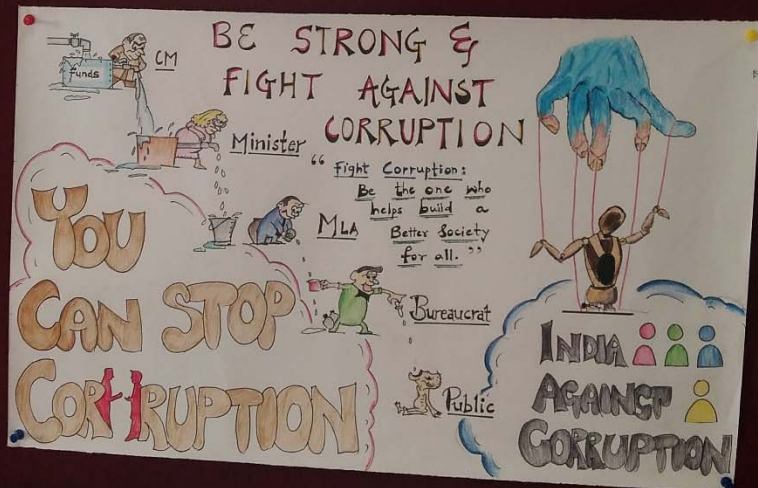 BE STRONG &
FIGHT AGAINST
CORRUPTION
funds
CM
Minister
MLA
Bureaucrat
Public
“ Fight Corruption:
Be the one who
helps build a
Better Society
for all. ”
YOU
CAN STOP
CORRUPTION
INDIA
AGAINST
CORRUPTION